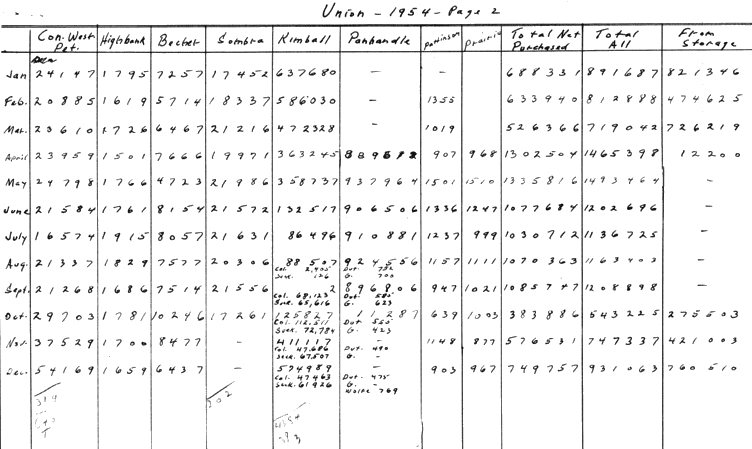 Union - 1954 - Page 2
Con. West Pet. Highbank Becher Sombra Kimball Panhandle Pattinson Prairie Total Net Purchased Total All From Storage
Jan 24147 1795 7257 17452 637680 - - 688331 891687 821346
Feb. 20885 1619 5714 18337 586030 - 1355 633940 812888 474625
Mar. 23610 1726 6467 21216 472328 1019 526366 719042 726219
April 23959 1501 7666 19971 363245 907 968 1302504 1465398 12200
May 24798 1766 4723 21986 358737 937964 1501 1510 1335816 1493464 -
June 21584 1761 8154 21572 132517 906506 1336 1247 1077684 1202696 -
July 16574 1915 8057 21631 86496 910881 1237 999 1030712 1136725 -
Aug. 21337 1829 7577 20306 88507 924556 1157 1111 1070363 1163403 -
Col. 2,405 Dut. 752
Seck. 126 G. 700
Sept. 21268 1686 7514 21556 2 896806 947 1021 1085747 1208898 -
Col. 68,123 Dut. 585
Seck. 65,616 G. 623
Oct. 29703 1781 10246 17261 125827 11287 639 1003 383886 543225 275503
Col. 112,511 Dut. 550
Seck. 72,784 G. 423
Nov. 37529 1700 8477 - 411117 - 1148 877 576531 747337 421003
Col. 47,686 Dut. 490
Seck. 67,507 G. -
Dec. 54169 1659 6437 - 574989 - 903 967 749757 931063 760510
Col. 47463 Dut. 475
Seck. 61926 G. -
Wolfe 769
319
202